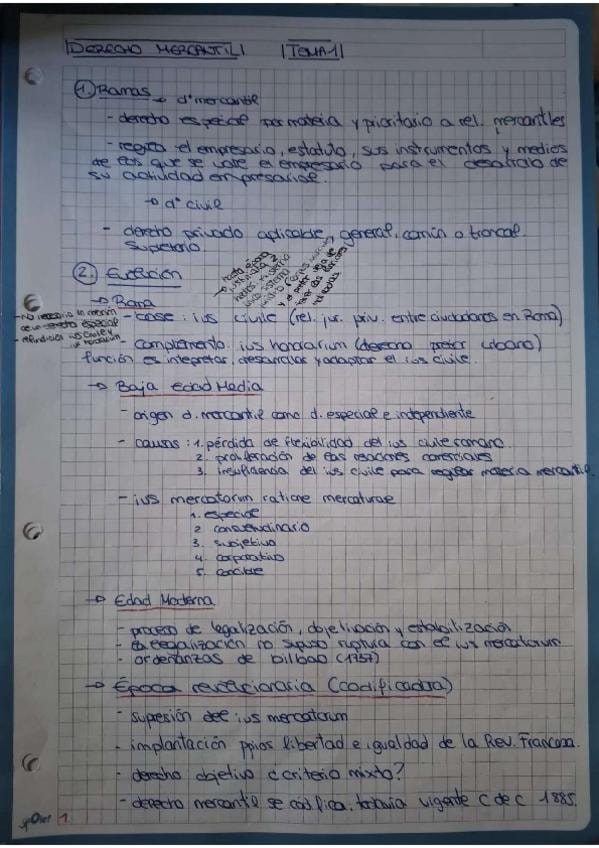 DERECHO MERCANTIL | TEMA 1
1. Ramas
→ dº mercantil
- derecho especial por materia y prioritario a rel. mercantiles
- regula el empresario, estatuto, sus instrumentos y medios
de los que se vale el empresario para el desarrollo de
su actividad empresarial.
→ dº civil
- derecho privado aplicable, general, común o troncal.
supletorio
2. Evolución
→ Roma
- base: ius civile (rel. jur. priv. entre ciudadanos en Roma)
- complemento: ius honorarium (derecho pretor urbano)
función es intepretar, desarrollar y adaptar el ius civile.
- no necesario la creación
de un derecho especial
ius civile y
ius honorarium
→ Baja Edad Media
- origen d. mercantil como d. especial e independiente
- causas: 1. pérdida de flexibilidad del ius civile romano.
2. proliferación de las relaciones comerciales
3. insuficiencia del ius civile para regular materia mercantil.
- ius mercatorum ratione mercaturae
1. especial
2 consuetudinario
3. subjetivo
4. corporativo
5.
→ Edad Moderna
- proceso de legalización, objetivación y estabilización
- la legalización no supuso ruptura con el ius mercatorum
- ordenanzas de bilbao (1737)
→ Época revolucionaria (codificadora)
- supresión del ius mercatorum
- implantación ppios libertad e igualdad de la Rev. Francesa.
- derecho objetivo c criterio mixto?
- derecho mercantil se codifica. todavia vigente C de C 1885.
1.